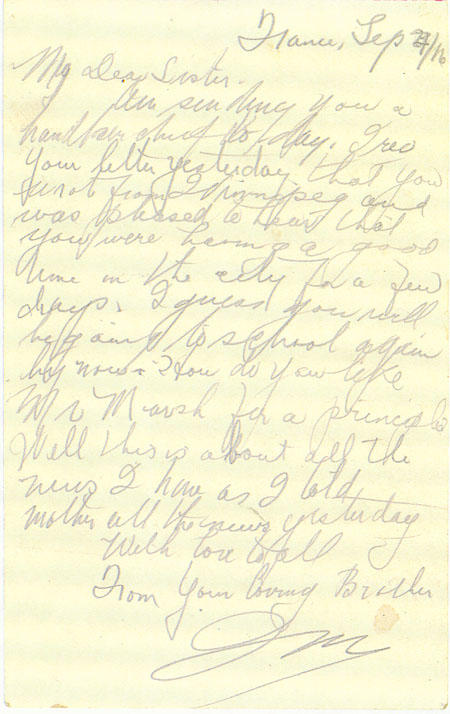 France, Sep /16
My Dear Sister.
Am sending you a
handkerchief to day, I rec
your letter yesterday that you
wrote from Winnipeg and
was pleased to hear that
you were having a good
time in the city for a few
days. I guess you will
be going to school again
by now. How do you like
Mr Marsh for a principle
Well this is about all the
news I have as I told
mother all the news yesterday
With love to all
From Your loving Brother